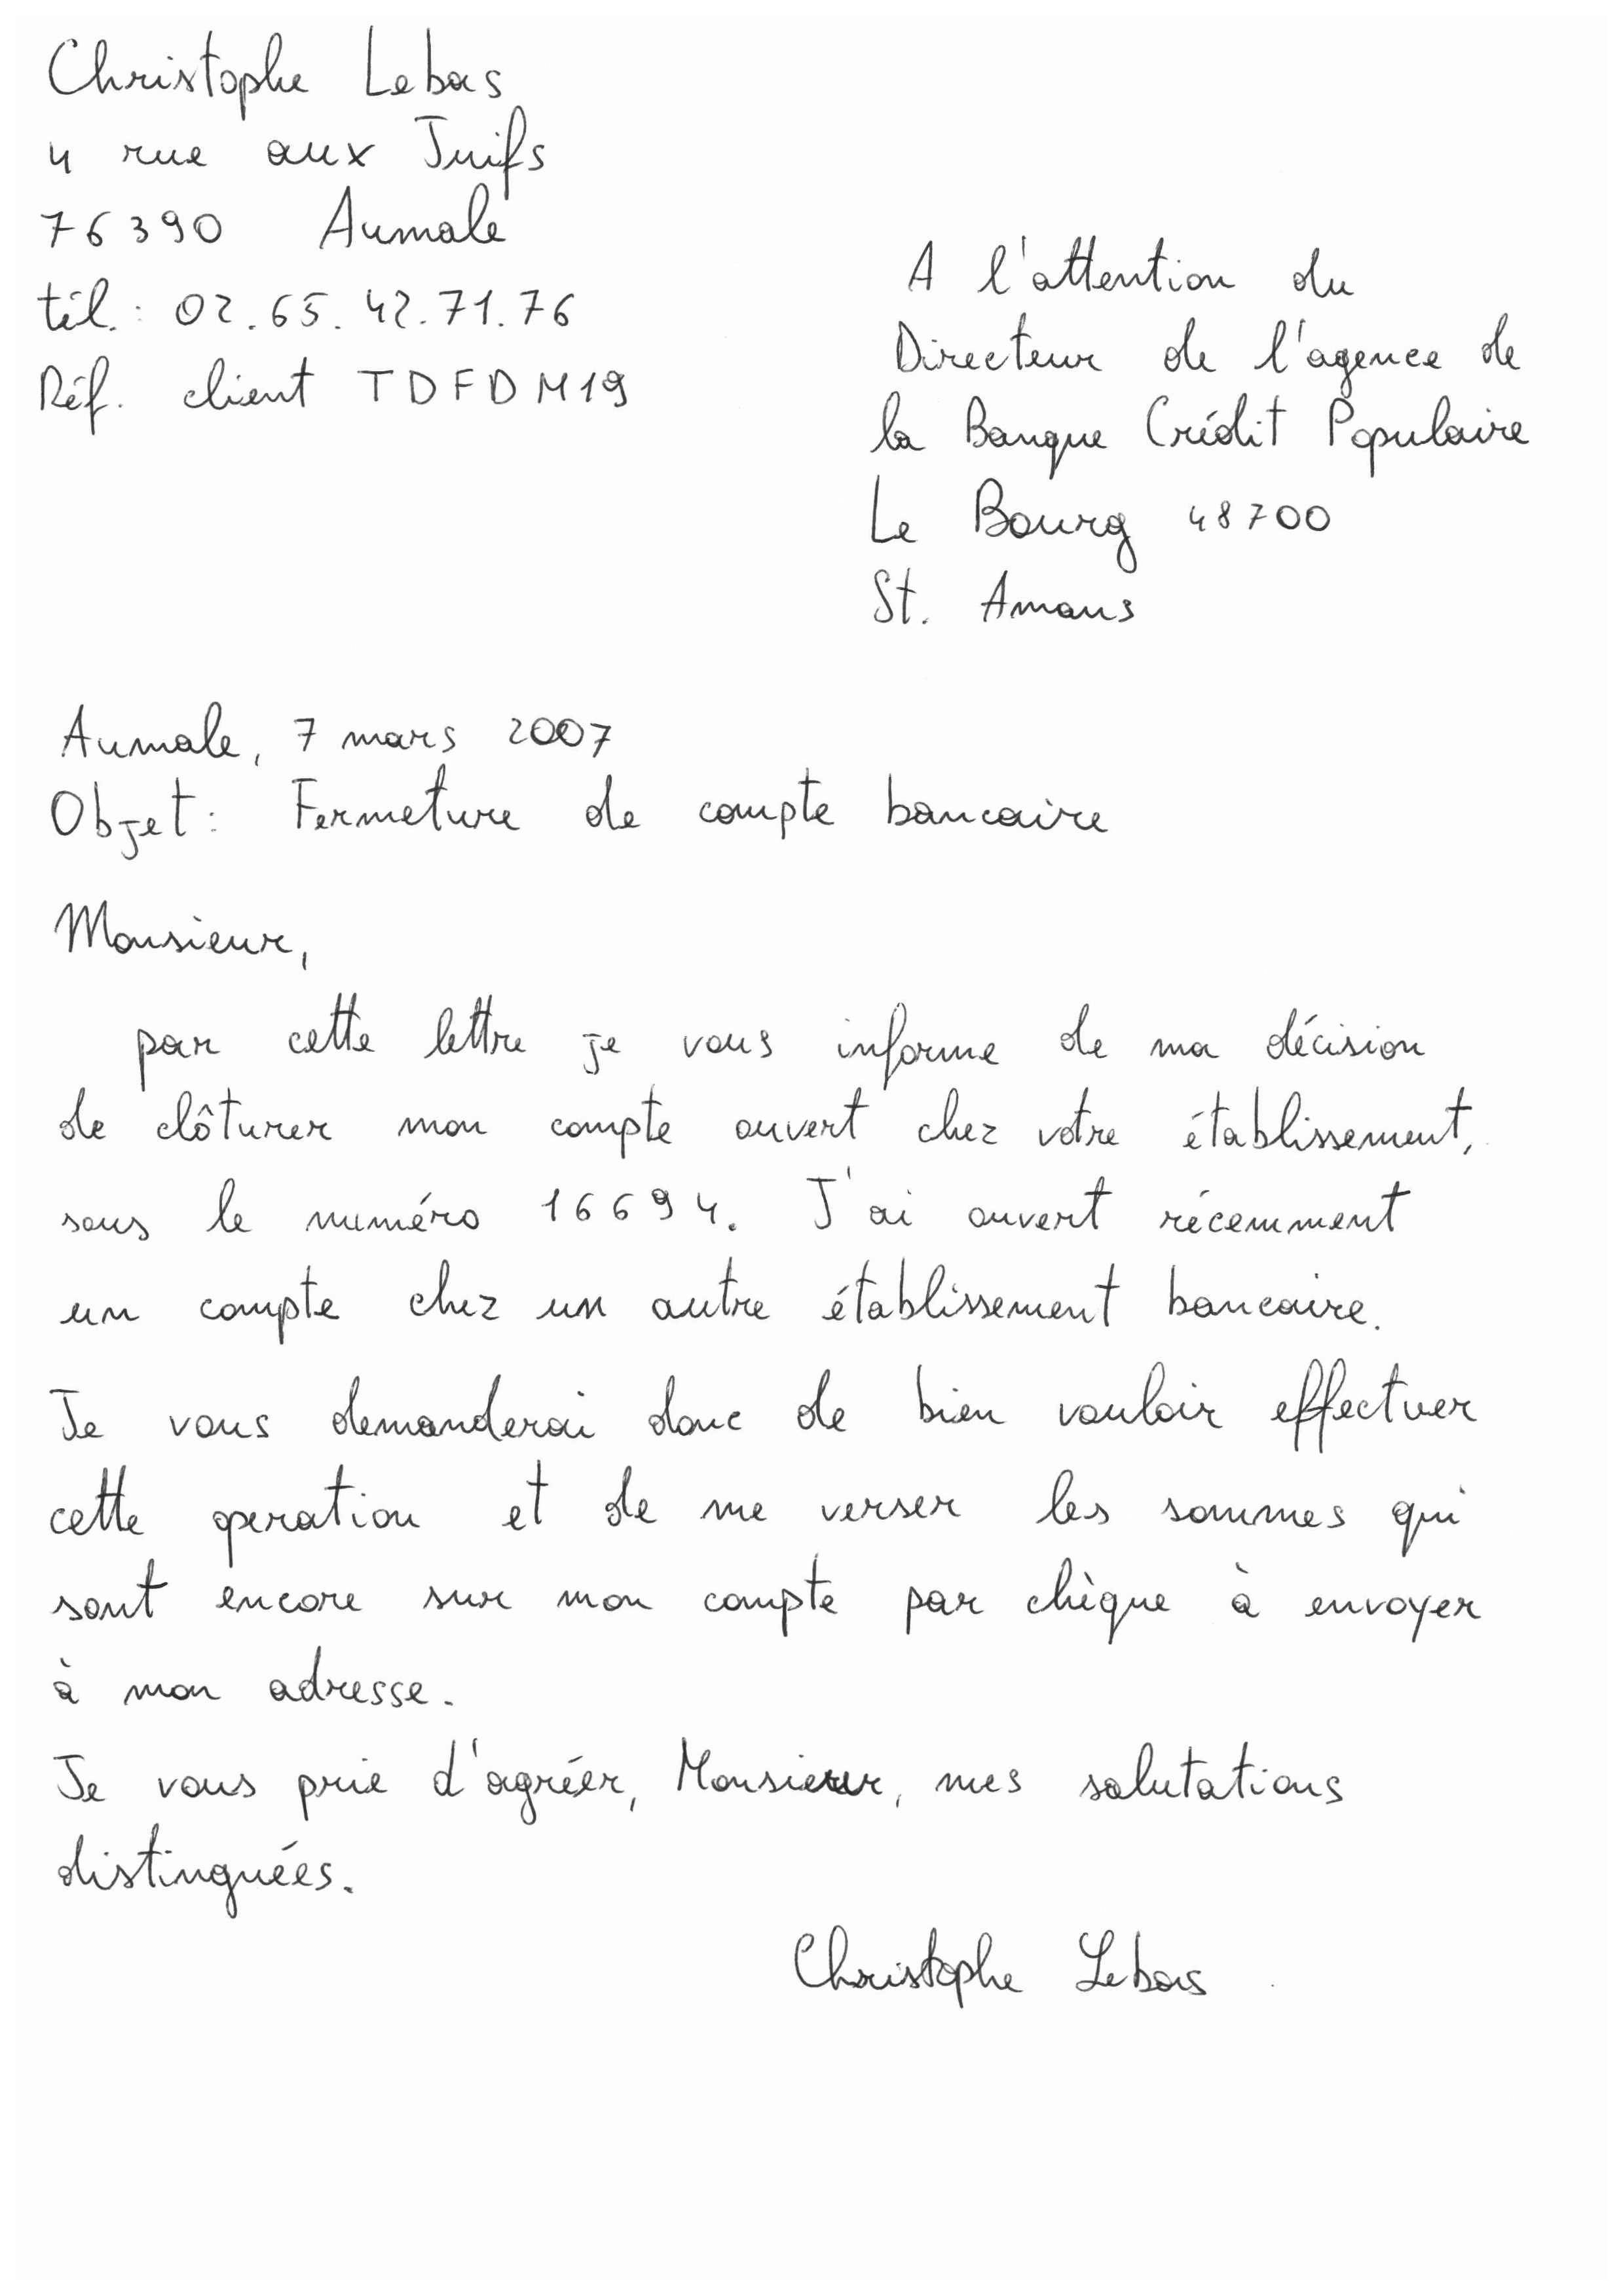 Christophe Lebas
4 rue aux Juifs
76390 Aumale
tél.: 02.65.42.71.76
Réf. client TDFDM19
A l'attention du
Directeur de l'agence de
la Banque Crédit Populaire
Le Bourg 48700
St. Amans
Aumale, 7 mars 2007
Objet: Fermeture de compte bancaire
Monsieur,
par cette lettre je vous informe de ma décision
de clôturer mon compte ouvert chez votre établissement,
sous le numéro 16694. J'ai ouvert récemment
un compte chez un autre établissement bancaire.
Je vous demanderai donc de bien vouloir effectuer
cette operation et de me verser les sommes qui
sont encore sur mon compte par chèque à envoyer
à mon adresse.
Je vous prie d'agréér, Monsieur, mes salutations
distinguées.
Christophe Lebas